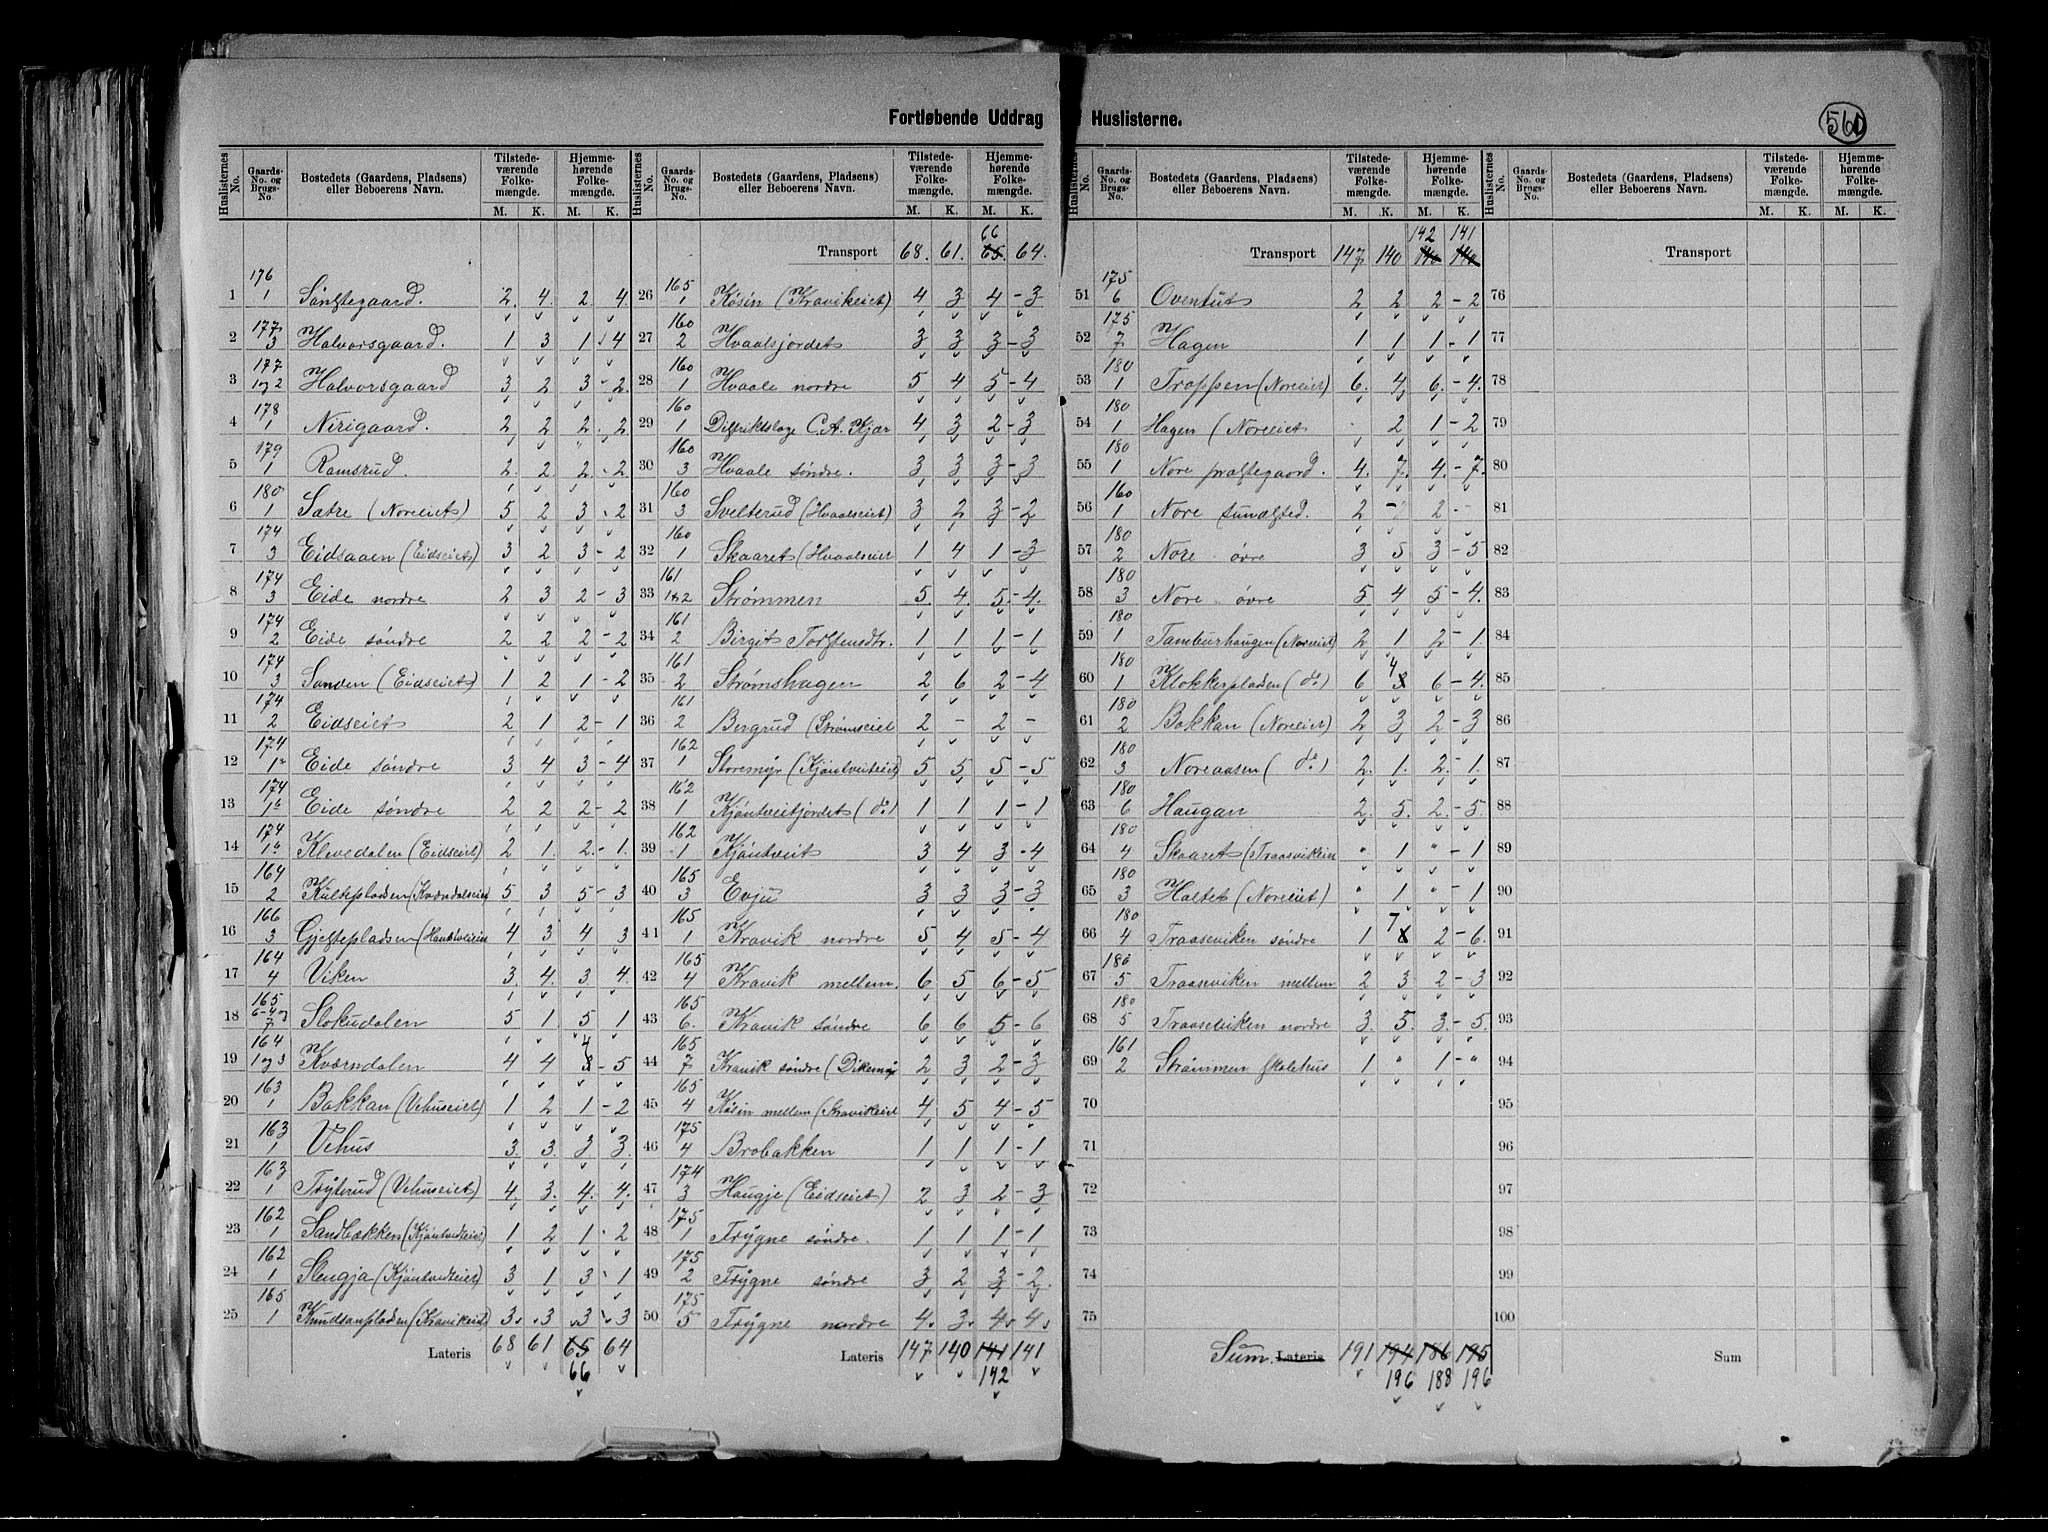 Fortløbende Uddrag Huslisterne. 560
Huslisternes No. Gaards-No. og Brugs-No. Bostedets (Gaardens, Pladsens) eller Beboerens Navn. Tilstedeværende Folkemængde. M. K. Hjemmehørende Folkemængde. M. K.
1 176 1 Söngstegaard. 2. 4. 2. 4.
2 177 3 Halvorsgaard. 1 3 1 4
3 177 1og2 Halvorsgaard 3 2 3 - 2.
4 178 1 Nirigaard. 2 2 2. 2
5 179 1 Ramsrud. 2. 2 2. - 2
6 180 1 Sætre (Noreeiet) 5 2 3 - 2
7 174 3 Eidsaaen (Eidseiet) 3 2 3 - 2
8 174 3 Eide nordre 2 3 2 - 3
9 174 2 Eide söndre 2 2 2 - 2
10 174 3 Sanden (Eidseiet) 1 2 1 - 2
11 174 2 Eidseiet 2 1 2 - 1
12 174 1a Eide söndre 3 4 3 - 4
13 174 1b Eide söndre 2 2 2 - 2
14 174 1b Klevedalen (Eidseiet) 2 1. 2. - 1.
15 164 2 Kultepladsen (Kvændalseiet 5 3 5 - 3
16 166 3 Gjestepladsen 4 3 4 3
17 164 4 Viken 3. 4. 3. 4.
18 165 7 Slokudalen 5 1 5 1
19 164 1og3 Kværndalen 4 4 3 4 - 5
20 163 1 Bakkan (Vehuseiet) 1 2 1 - 2
21 163 1 Vehus 3. 3. 3 3.
22 163 1 Tryterud (Vehuseiet) 4. 3. 4. 4.
23 162 1 Sandbækken (Kjöntveiteiet) 1 2 1 - 2
24 162 1 Slengja (Kjöntveiteiet) 3 1 3 1
25 165 1 Knudsenpladsen (Kravikeiet) 3. 3 3 3
Lateris 68 61 65 66 64
Huslisternes No. Gaards-No. og Brugs-No. Bostedets (Gaardens, Pladsens) eller Beboerens Navn. Tilstedeværende Folkemængde. M. K. Hjemmehørende Folkemængde. M. K.
Transport 68. 61. 65. 66 64.
26 165 1 Kösin (Kravikeiet) 4 3 4 - 3
27 160 2 Hvaalsjordet 3 3 3 - 3
28 160 1 Hvaale nordre 5 4 5 - 4
29 160 1 Distriktslæge C.A. Kjær 4 3 2 - 3
30 160 3 Hvaale söndre. 3 3 3 - 3
31 160 3 Svelterud (Hvaalseiet) 3 2 3 - 2
32 160 1 Skaaret (Hvaalseiet 1 4 1 - 3
33 161 1&2 Strømmen 5. 4. 5. - 4.
34 161 2 Birgit Torstensdtr. 1 1 1 - 1
35 161 2 Strømshagen 2 6 2 - 4
36 161 2 Bergrud (Strømseiet 2 - 2 -
37 162 1 Storemyr (Kjöntveiteiet) 5 5 5 - 5
38 162 1 Kjöntveitjordet (do) 1 1 1 - 1
39 162 1 Kjöntveit 3 4 3 - 4
40 165 3 Evju 3 3 3 - 3
41 165 1 Kravik nordre 5 4 5 - 4
42 165 4 Kravik mellem. 6 5 6 - 5
43 165 6. Kravik söndre 6 6 5 - 6
44 165 7 Kravik söndre (Dikemyr 2 3 2 - 3
45 165 4 Kösin mellem (Kravikeiet 4 5 4 - 5
46 175 4 Brobakken 1 1 1 - 1
47 174 3 Haugje (Eidseiet) 2 3 2 - 3
48 175 1 Frygne söndre. 1 1 1 - 1
49 175 2 Frygne söndre 3 2 3 - 2.
50 175 5 Frygne nordre 4. 3. 4. 4.
Lateris 147 140 141 142 141
Huslisternes No. Gaards-No. og Brugs-No. Bostedets (Gaardens, Pladsens) eller Beboerens Navn. Tilstedeværende Folkemængde. M. K. Hjemmehørende Folkemængde. M. K.
Transport 147 140 140 142 140 141
51 175 6 Oventut 2 2 2 - 2
52 175 7 Hagen 1 1 1 - 1
53 180 1 Troppen (Noreeiet) 6. 4. 6. - 4.
54 180 1 Hagen (Noreeiet 2 1 - 2
55 180 1 Nore præstegaard. 4. 7. 4. - 7.
56 160 1 Nore 2 - 2 -
57 180 2 Nore övre 3 5 3 - 5
58 180 3 Nore övre 5 4 5 - 4.
59 180 1 Tamburhaugen (Noreeiet) 2 1 2 - 1.
60 180 1 Klokkerpladsen (do) 6 4 6 - 4.
61 180 2 Bakkan (Noreeiet) 2 3 2 - 3
62 180 3 Noreaasen (do) 2. 1. 2. - 1.
63 180 6 Haugan 2. 5. 2. - 5.
64 180 4 Skaaret (Traasvikeien " 1 " - 1
65 180 3 Haltet (Noreeiet) " 1 " - 1
66 180 4 Traaseviken söndre 1 7 2 - 6.
67 180 5 Traaseviken mellem 2 3 2 - 3
68 180 5 Traaseviken nordre 3. 5. 3. - 5.
69 161 2 Strömmen skolehus 1 " 1 - "
70
71
72
73
74
75
Sum. Lateris 191 194 196 186 188 195 196
Huslisternes No. Gaards-No. og Brugs-No. Bostedets (Gaardens, Pladsens) eller Beboerens Navn. Tilstedeværende Folkemængde. M. K. Hjemmehørende Folkemængde. M. K.
Transport
76
77
78
79
80
81
82
83
84
85
86
87
88
89
90
91
92
93
94
95
96
97
98
99
100
Sum